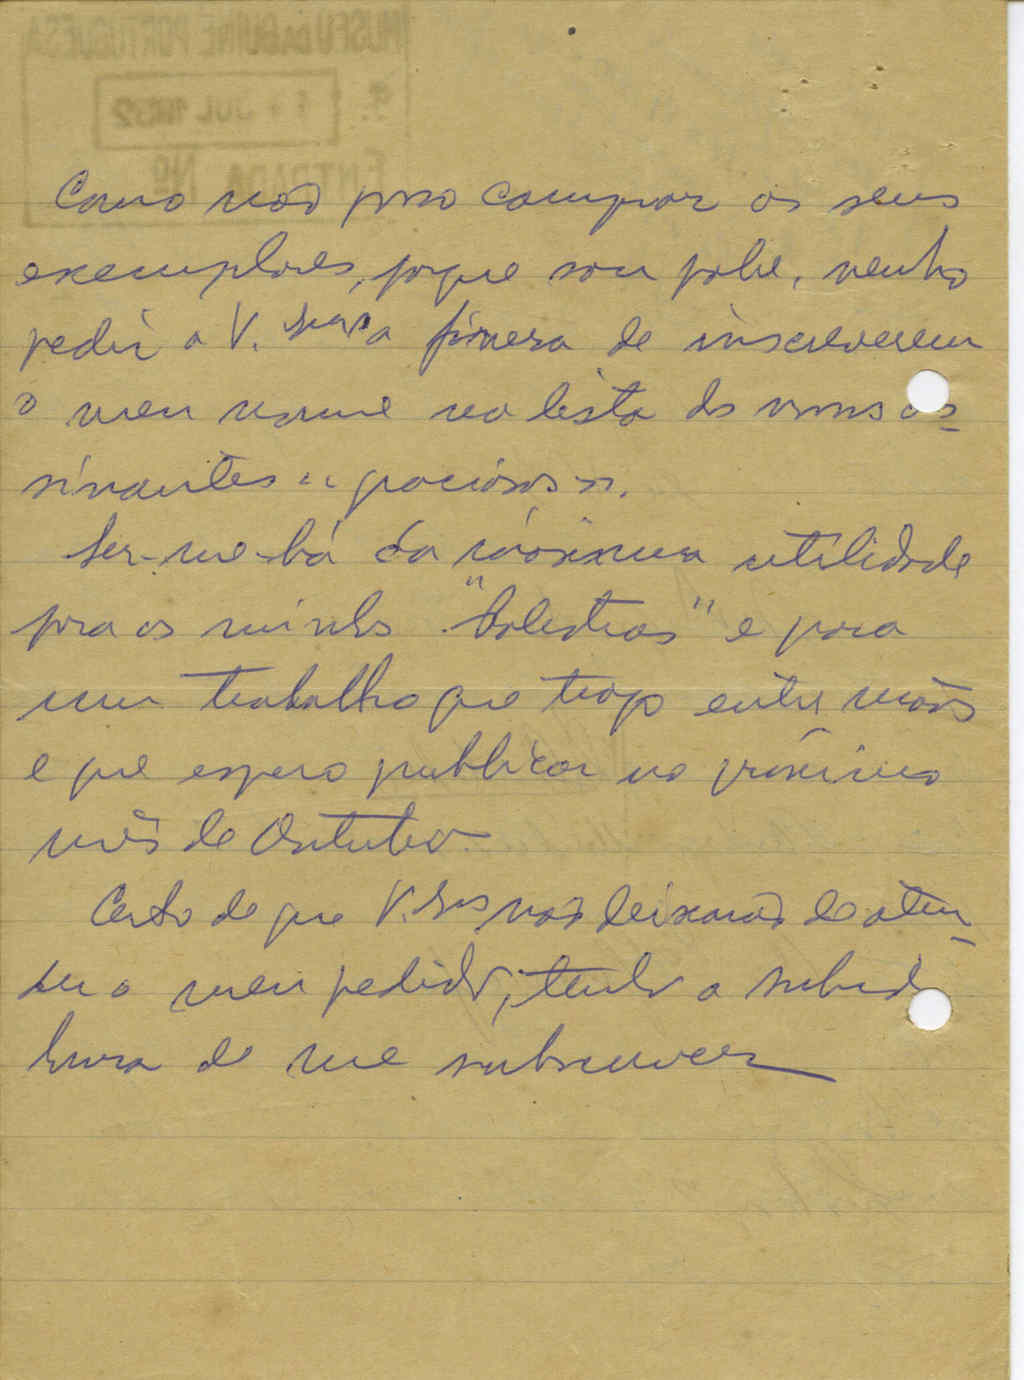 MUSEU DA GUINÉ PORTUGUESA
JUL 1952
ENTRADA Nº
Como não posso comprar os seus
exemplares, porque sou pobre, venho
pedir a V. a fineza de inscreverem
o meu nome na lista dos vossos as-
sinantes «graciosos».
Ser-me-há da máxima utilidade
para os minhas "Palestras" e para
um trabalho que trago entre mãos
e que espero publicar no próximo
mês de Outubro.
Certo de que V. Sas não deixarão de aten-
der o meu pedido, tenho a subida
honra de me subscrever